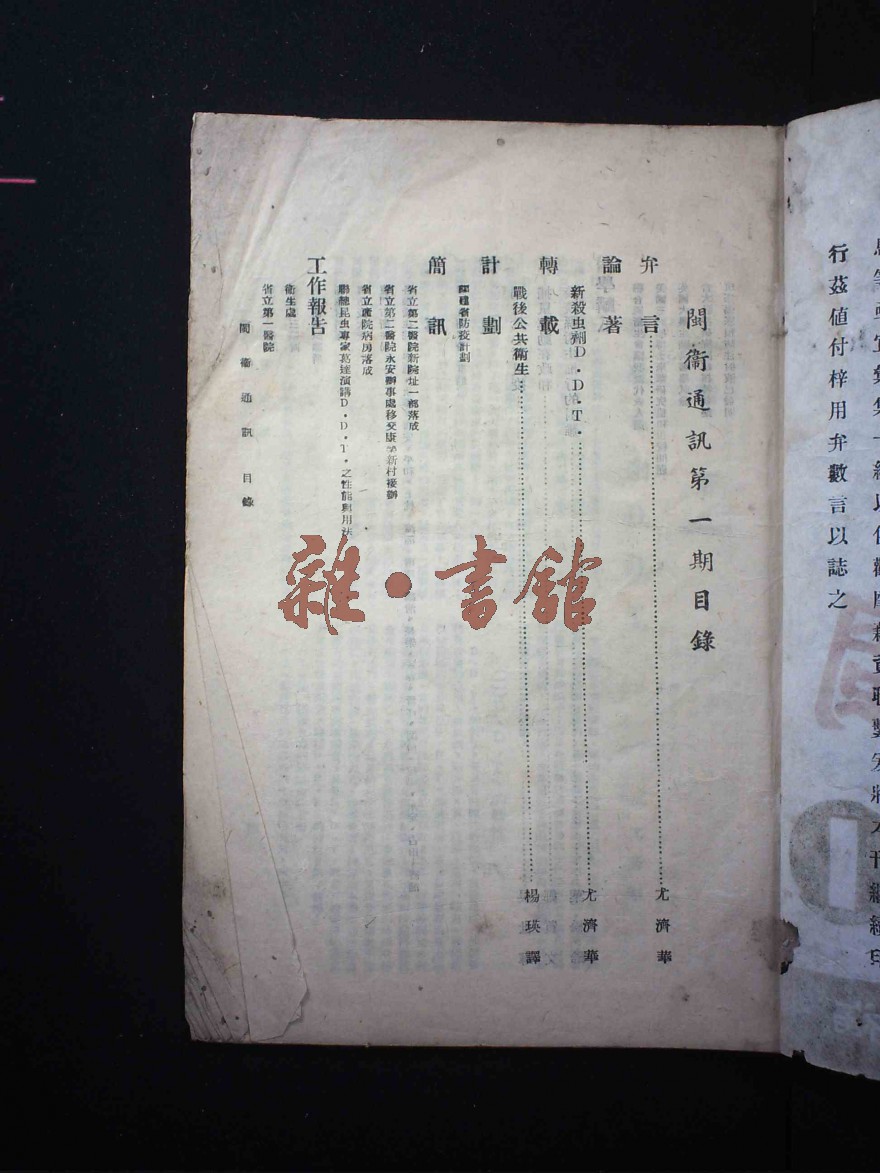 行茲值付梓用弁數言以誌之
閩衞通訊第一期目錄
弁言……尤濟華
論著
新殺虫劑D.D.T.……尤濟華
轉載
戰後公共衞生……楊瑛譯
計劃
福建省防疫計劃
簡訊
省立第二醫院新院址一部落成
省立第二醫院永安辦事處移交康樂新村接辦
省立產院病房落成
聯總昆虫專家葛達演講D.D.T.之性能與用法
工作報告
衞生處
省立第一醫院
閩衞通訊 目錄
雜·書館